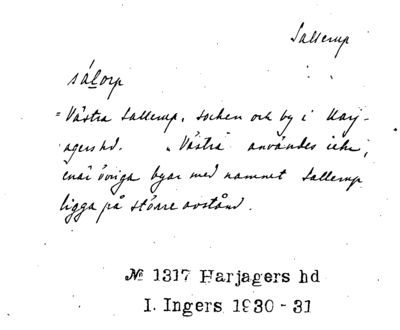 Sallerup
sálorp
= Västra Sallerup, socken och by i Harj-
agers hd. "Västra" användes icke,
enär övriga byar med namnet Sallerup
ligga på större avstånd.
№ 1317 Harjagers hd
I. Ingers 1930-31